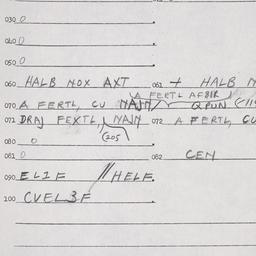 030 0
040 0
050 0
060 HALB NOX AXT 061 + HALB
A FERTL AF8IR
070 A FERTL, CU NAJN / QPUN
071 DRAJ FEXTL, NAJN 072 A FERTL, CU
(205
080 0
081 0 082 CEN
090 EL1F // HELF
100 CVEL3F